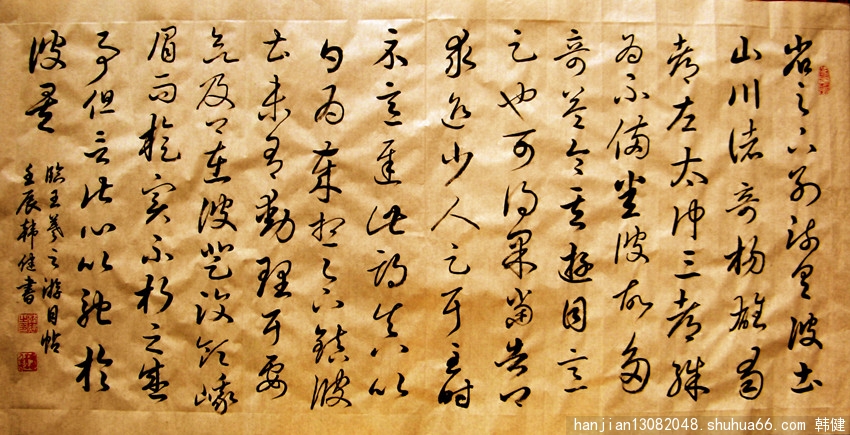 省足下別疏具彼土
山川諸奇楊雄蜀
都左太冲三都殊
為不備悉彼故多
奇益令其遊目意
足也可得果當告卿
求迎少人足耳至時
示意遲此期真以
日為歲想足下鎮彼
土未有動理耳要
欲及卿在彼登汶領峨
眉而旋實不朽之盛
事但言此心以馳於
彼矣
臨王羲之游目帖
壬辰韩健書
hanjian13082048.shuhua66.com 韩健